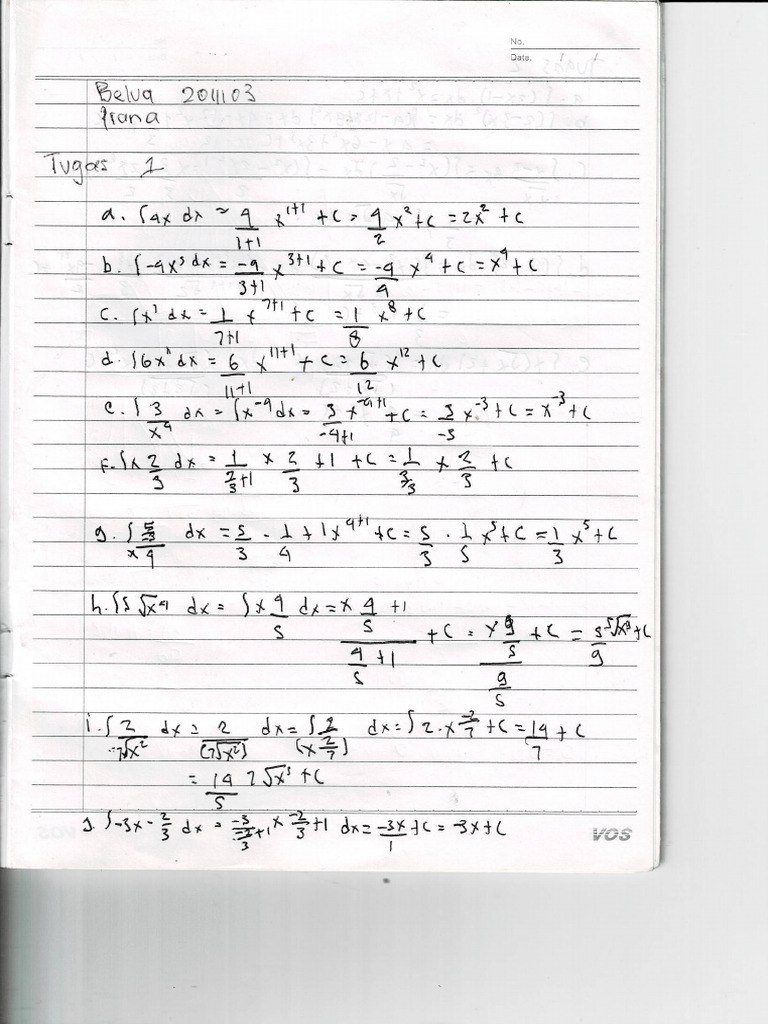 No.
Date. / /
Belva 2011103
Prana
Tugas 1
a. ∫4x dx = 4/(1+1) x^(1+1) + C = 4/2 x² + C = 2x² + C
b. ∫-4x³ dx = -4/(3+1) x^(3+1) + C = -4/4 x⁴ + C = x⁴ + C
c. ∫x⁷ dx = 1/(7+1) x^(7+1) + C = 1/8 x⁸ + C
d. ∫6x¹¹ dx = 6/(11+1) x^(11+1) + C = 6/12 x¹² + C
e. ∫3/x⁴ dx = ∫x⁻⁴ dx = 3/(-4+1) x^(-4+1) + C = 3/-3 x⁻³ + C = x⁻³ + C
F. ∫x 2/3 dx = 1/(2/3+1) x 2/3 + 1 + C = 1/(3/3) x 2/3 + C
dx = 5/3 · 1/4 + 1x^(4+1) + C = 5/3 · 1/5 x⁵ + C = 1/3 x⁵ + C
h. ∫5√x⁴ dx = ∫x 4/5 dx = (x 4/5 + 1)/(4/5 + 1) + C = (x 9/5)/(9/5) + C = 5/9 ⁵√x⁹ + C
i. ∫2/(7√x²) dx = 2/(7√x²) dx = ∫2/(x 2/7) dx = ∫2·x^(-2/7) + C = 14/7 + C
= 14/5 7√x³ + C
j. ∫-3x - 2/3 dx = -3/(-2/3+1) x -2/3 + 1 dx = -3x/1 + C = -3x + C
VOS